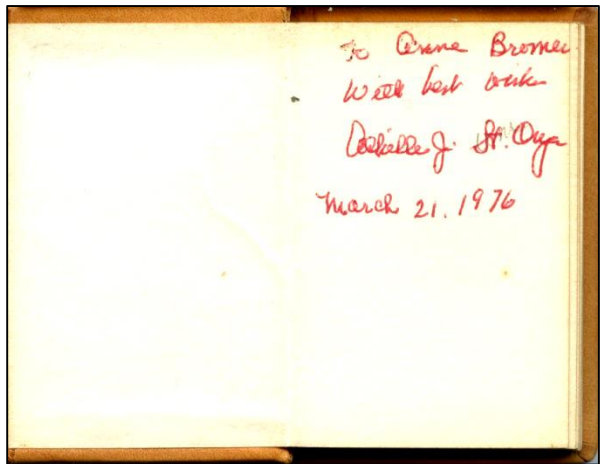 To Anne Bromer
With best wishes
Achille J. St. Onge
March 21. 1976